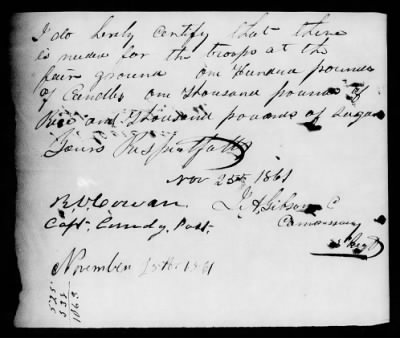 I do hereby certify that there
is needed for the troops at the
fair ground one hundred pounds
of Candles, one thousand pounds of
Rice one thousand pounds of Sugar
Yours Respectfully
Nov 25th 1861
R. V. Cowan.
Capt. Comdg. Post.
Gibson C
Commissary
Regt
November 25th 1861